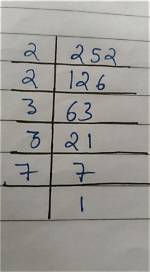 2 252
2 126
3 63
3 21
7 7
1